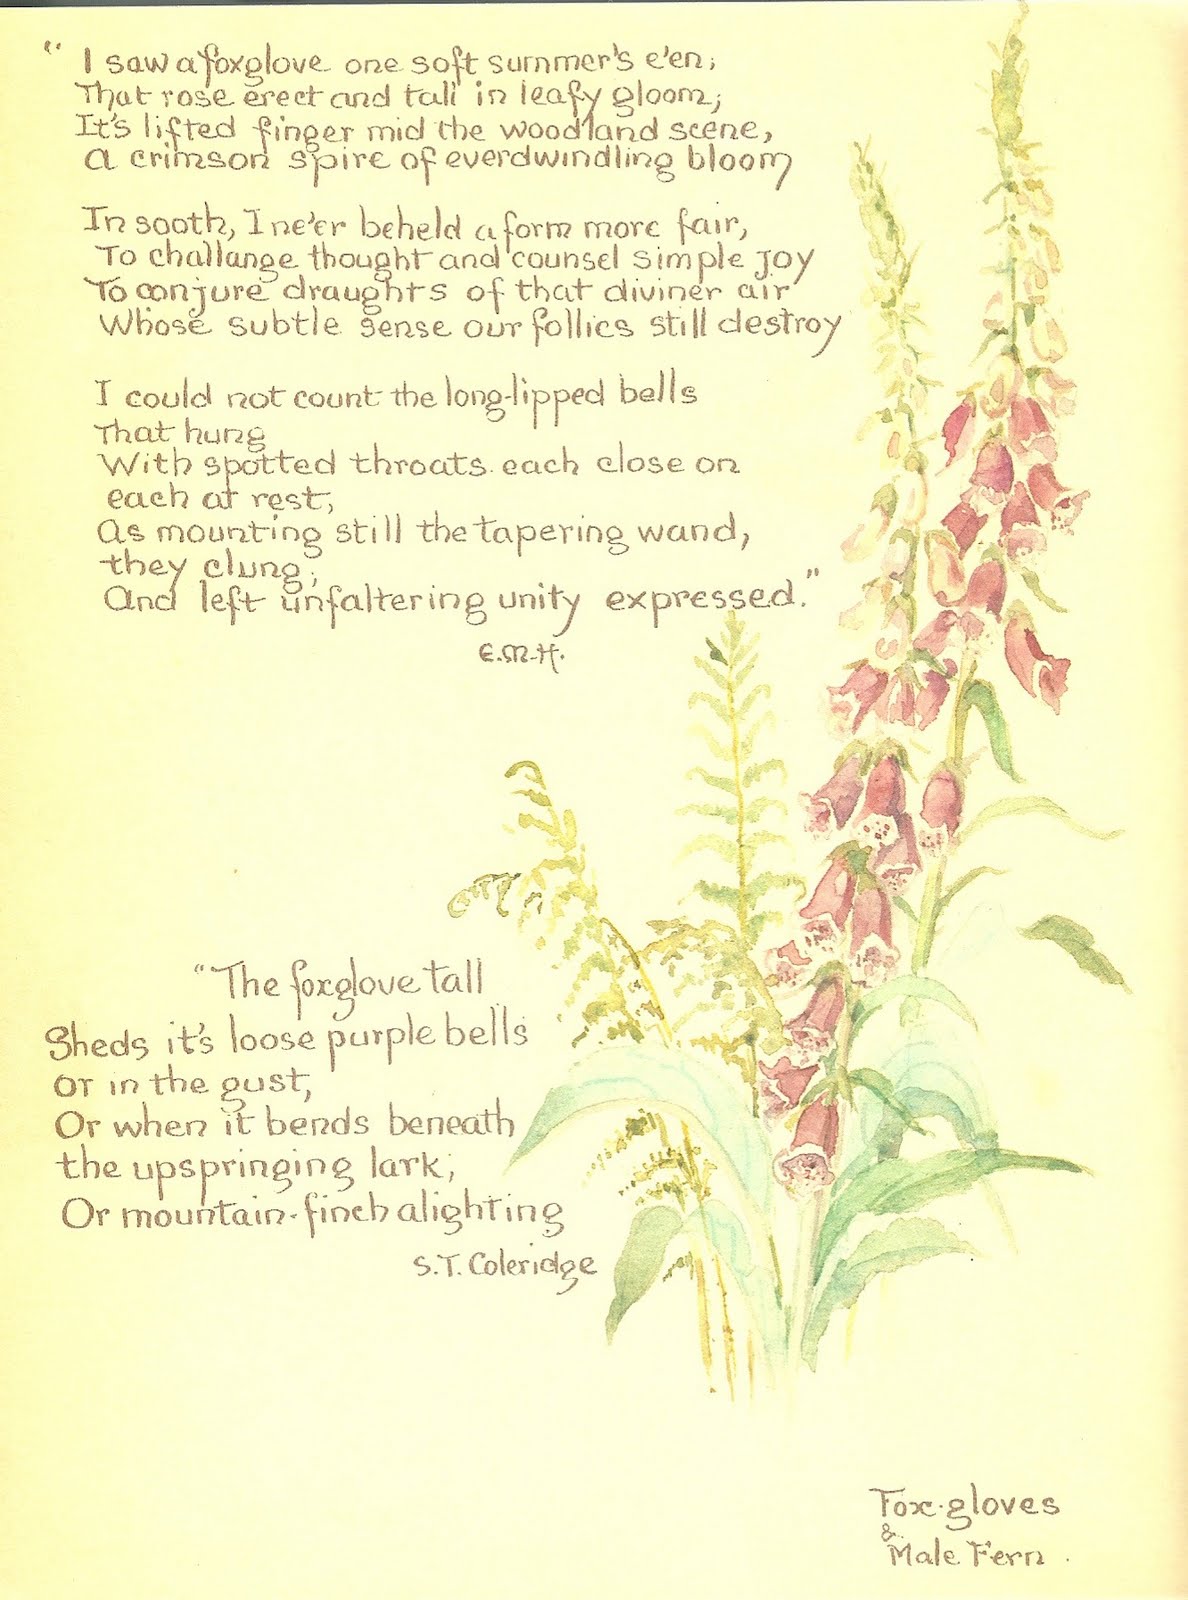 "I saw a foxglove one soft summer's e'en;
That rose erect and tall in leafy gloom;
It's lifted finger mid the woodland scene,
A crimson spire of everdwindling bloom
In sooth, I ne'er beheld a form more fair,
To challange thought and counsel simple joy
To conjure draughts of that diviner air
Whose subtle sense our follies still destroy
I could not count the long-lipped bells
That hung
With spotted throats each close on
each at rest;
As mounting still the tapering wand,
they clung;
And left unfaltering unity expressed."
E.M.H.
"The foxglove tall
Sheds it's loose purple bells
or in the gust,
Or when it bends beneath
the upspringing lark;
Or mountain-finch alighting
S.T. Coleridge
Fox-gloves
&
Male Fern.